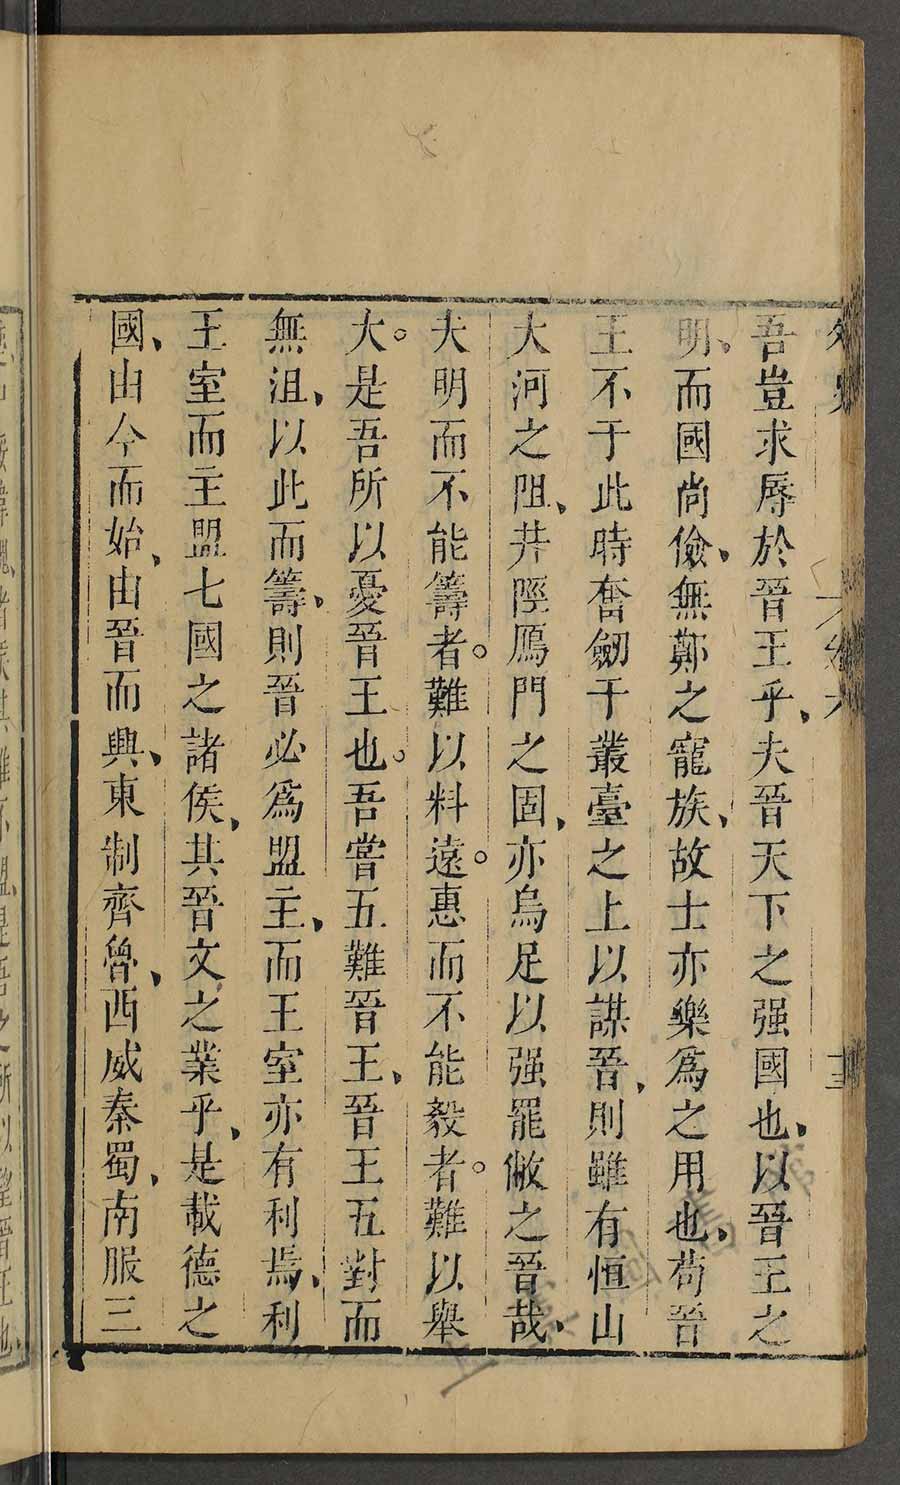 吾豈求辱於晉王乎、夫晉天下之强國也、以晉王之
明、而國尚儉、無鄭之寵族、故士亦樂爲之用也、苟晉
王不于此時奮劒于叢臺之上以謀晉、則雖有恒山
大河之阻、井陘鴈門之固、亦烏足以强罷敝之晉哉、
夫明而不能籌者。難以料遠。惠而不能毅者。難以舉
大。是吾所以憂晉王也。吾嘗五難晉王、晉王五對而
無沮、以此而籌、則晉必爲盟主、而王室亦有利焉、利
王室而主盟七國之諸侯、其晉文之業乎、是載德之
國、由今而始、由晉而興、東制齊魯、西威秦蜀、南服三